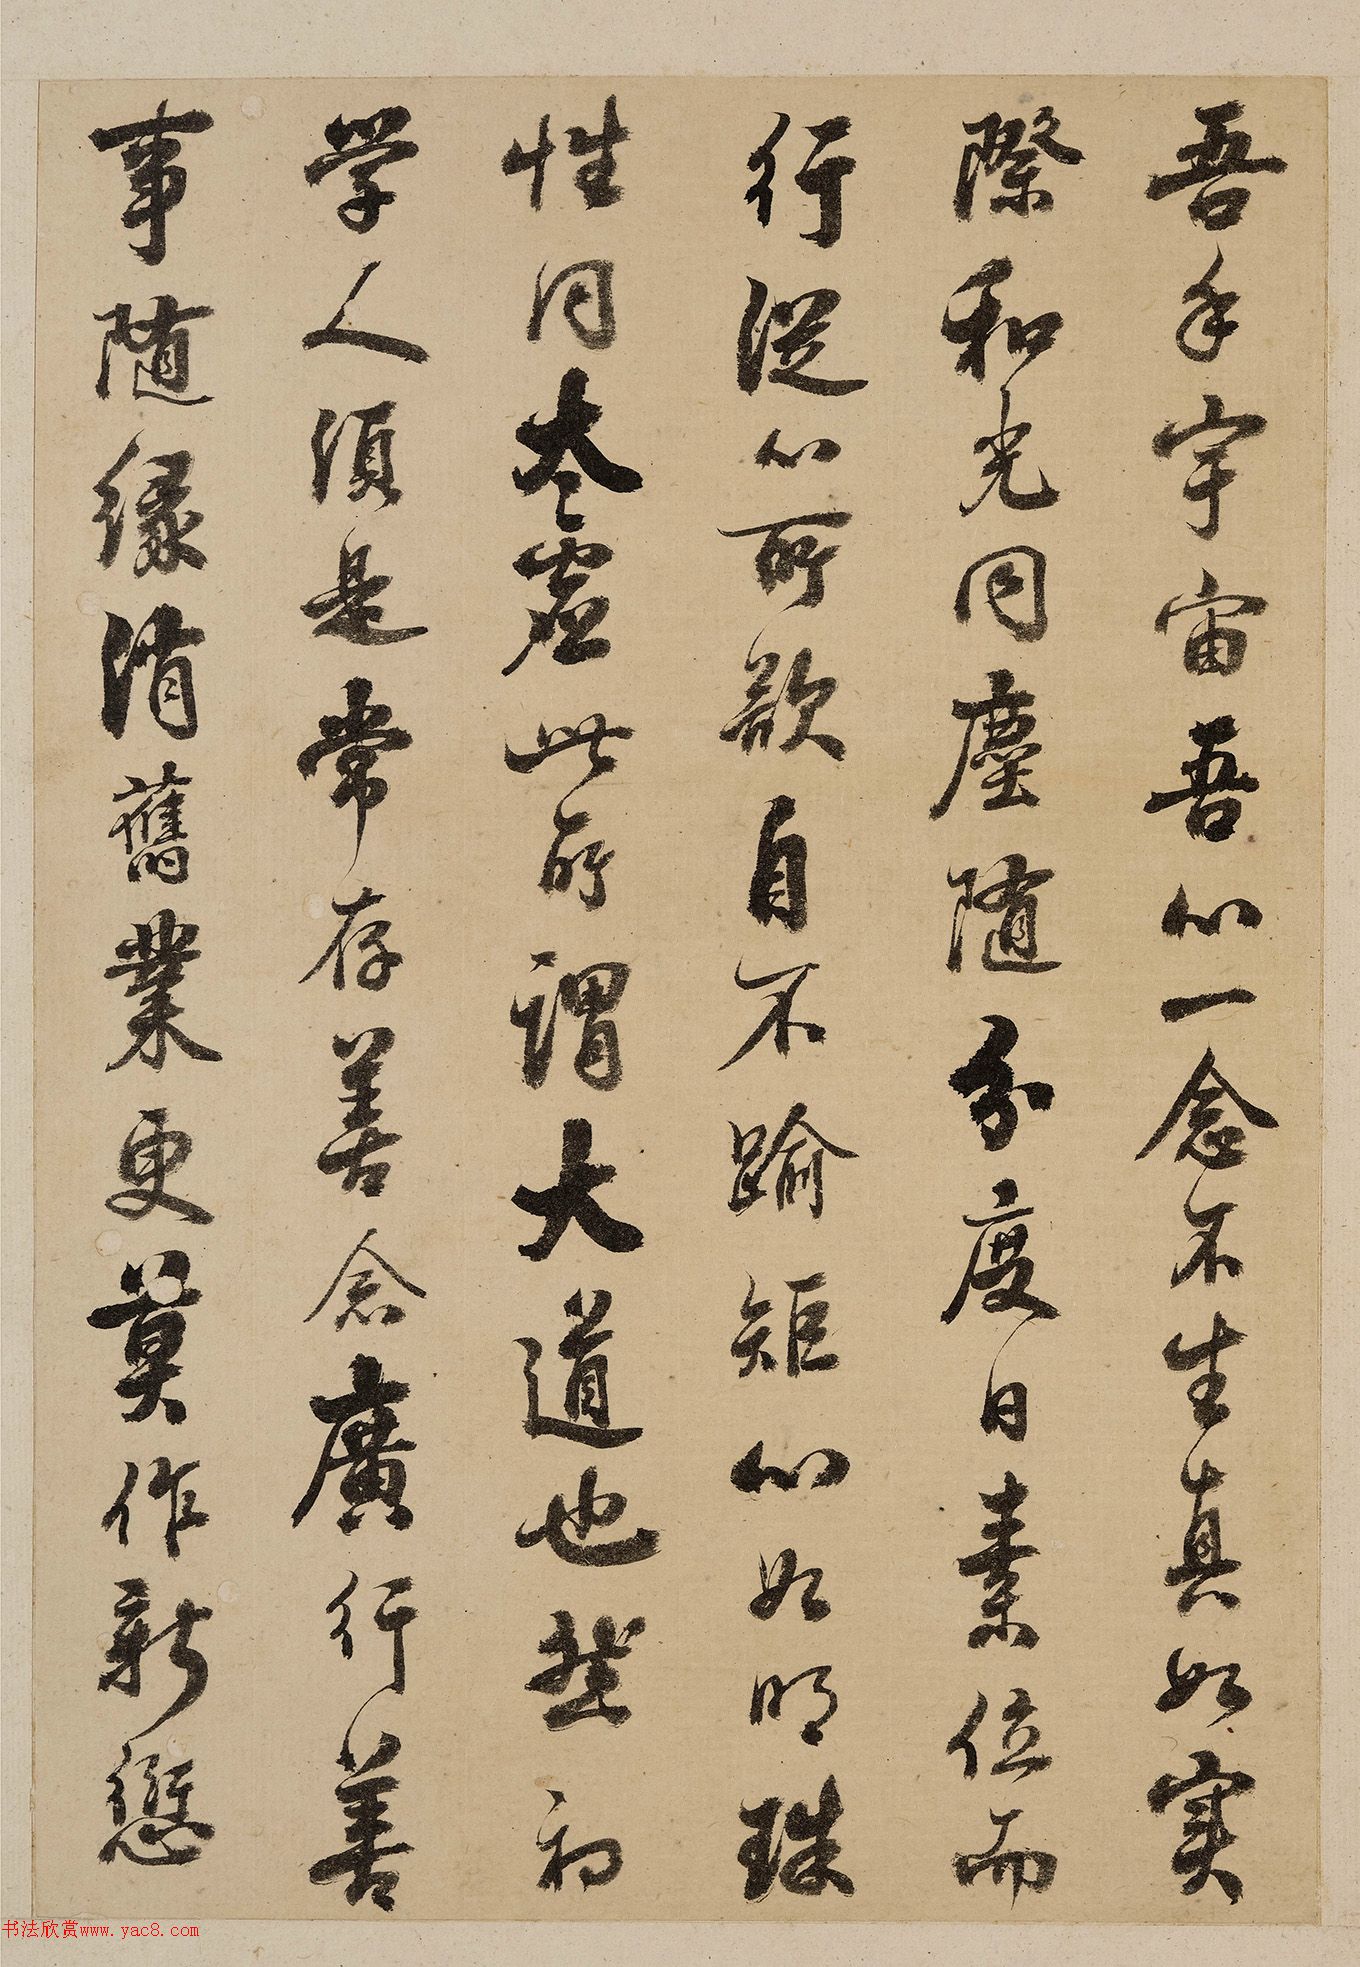 吾手宇宙吾心一念不生真如實
際和光同塵隨分度日素位而
行從心所欲自不踰矩心如明珠
性同太虛此所謂大道也然初
学人須是常存善念廣行善
事隨緣消舊業更莫作新愆
书法欣赏www.yac8.com